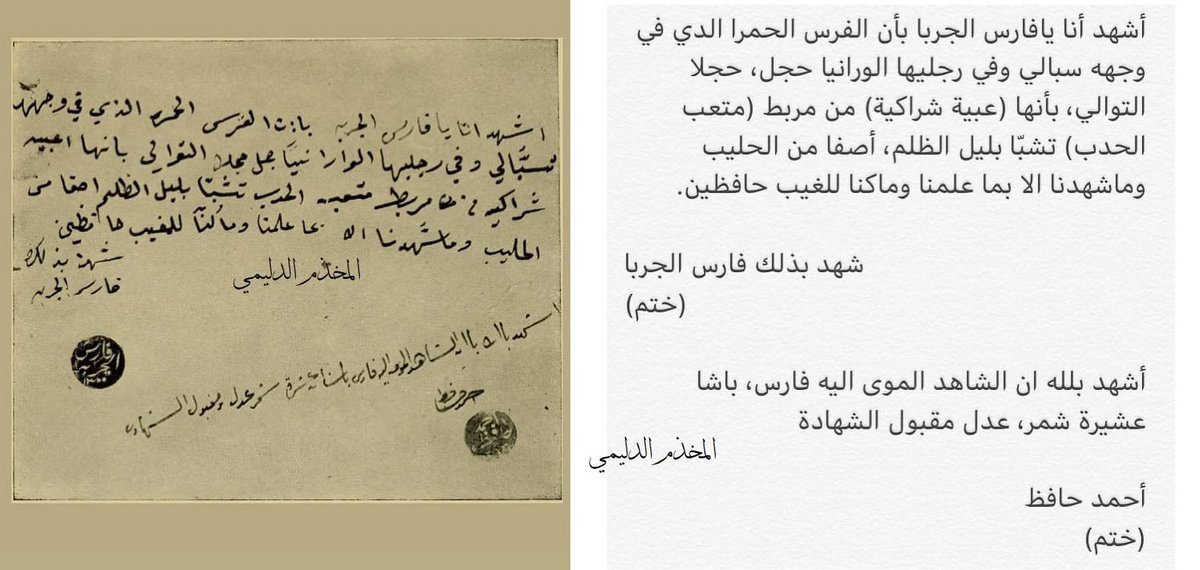 اشهد انا يا فارس الجربه بان الفرس الحمره الذي في وجهه
سبالي وفي رجليها الوارا نيا حجل محجلا التوالي بانها اعبيه
شراكيه من مربط متعب الحدب تشبا بليل الظلم اصفا من
الحليب وماشهدنا الا بما علمنا وماكنا للغيب حافظين
شهد بذلك
فارس الجربه
المخذم الدليمي
فارس الجربه
اشهد بالله بان الشاهد الموى اليه فارس باشا عشيرة شمر عدل ومقبول الشهاده
احمد حافظ
أشهد أنا يافارس الجربا بأن الفرس الحمرا الدي في
وجهه سبالي وفي رجليها الورانيا حجل، حجلا
التوالي، بأنها (عبية شراكية) من مربط (متعب
الحدب) تشبّا بليل الظلم، أصفا من الحليب
وماشهدنا الا بما علمنا وماكنا للغيب حافظين.
شهد بذلك فارس الجربا
(ختم)
أشهد بلله ان الشاهد الموى اليه فارس، باشا
عشيرة شمر، عدل مقبول الشهادة
المخذم الدليمي
أحمد حافظ
(ختم)